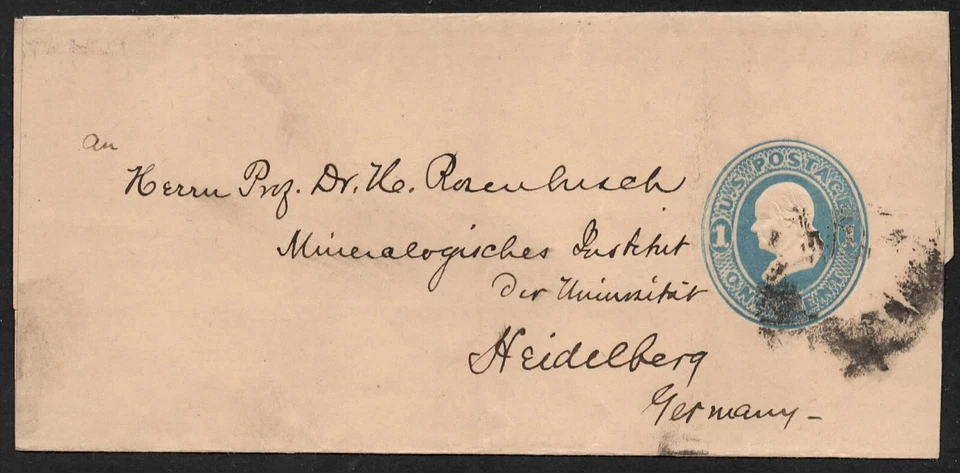 An
Herrn Prof. Dr. H. Rosenbusch
Mineralogisches Institut
der Universität
Heidelberg
Germany -
U.S. POSTAGE
1 1
ONE CENT